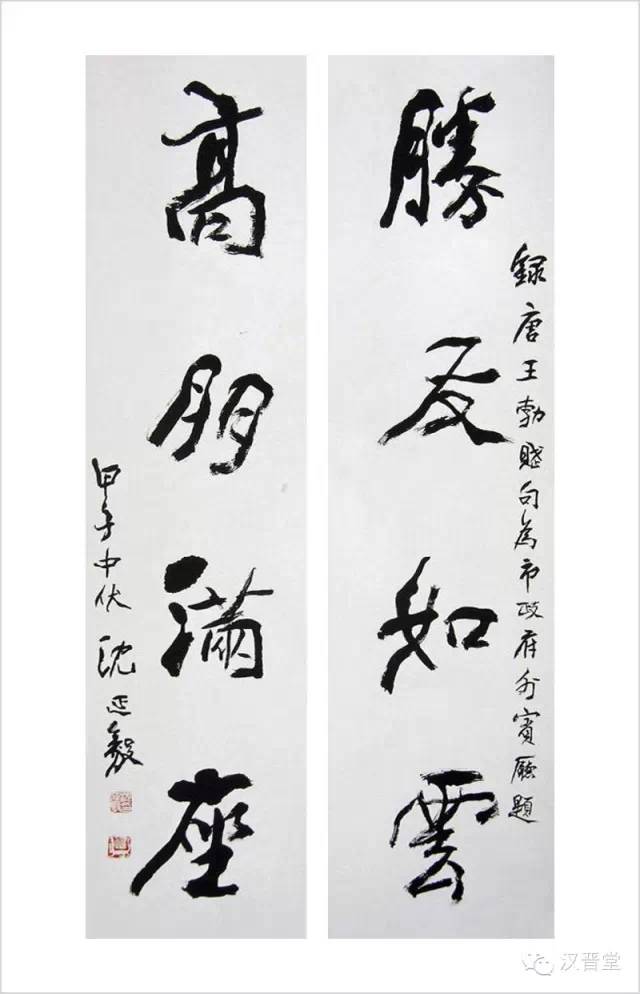 錄唐王勃賦句為市政府外賓廳題
勝友如雲
高朋滿座
甲子中伏沈延毅
汉晋堂